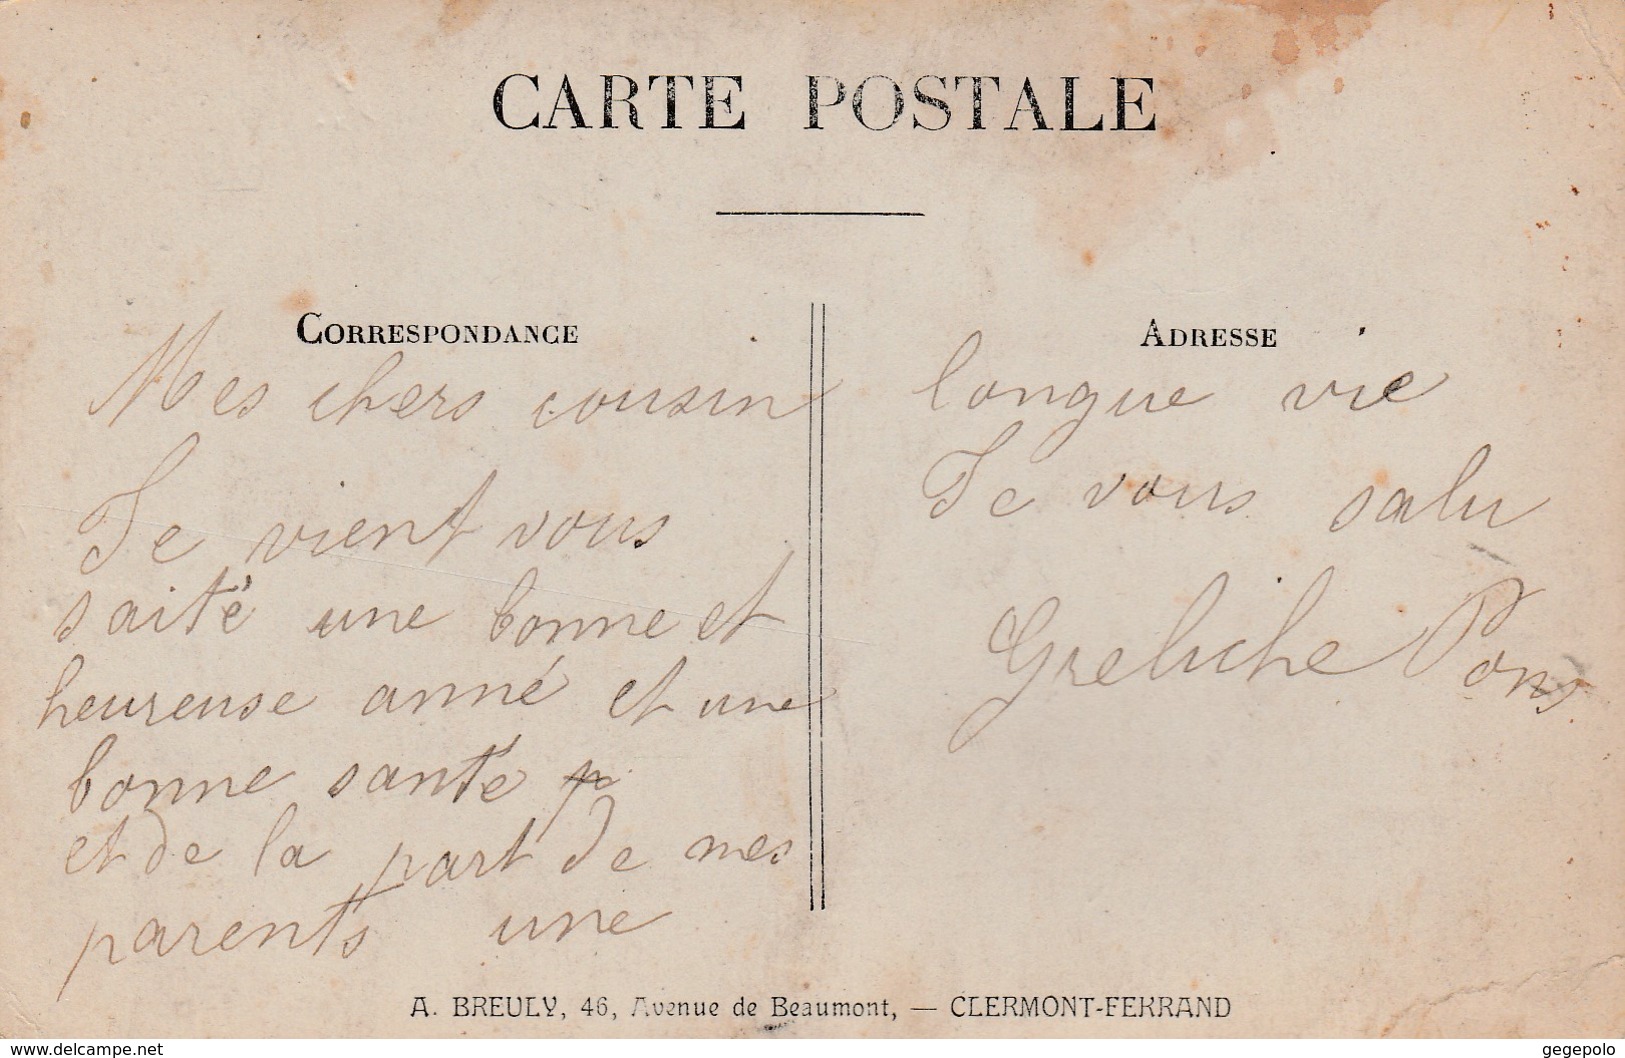 CARTE POSTALE
CORRESPONDANCE
Mes chers cousin
Je vient vous
saité une bonne et
heureuse anné et une
bonne santé
et de la part de mes
parents une
ADRESSE
longue vie
Je vous salu
Greliche Pons
A. BREULY, 46, Avenue de Beaumont, — CLERMONT-FERRAND
www.delcampe.net
gegepolo